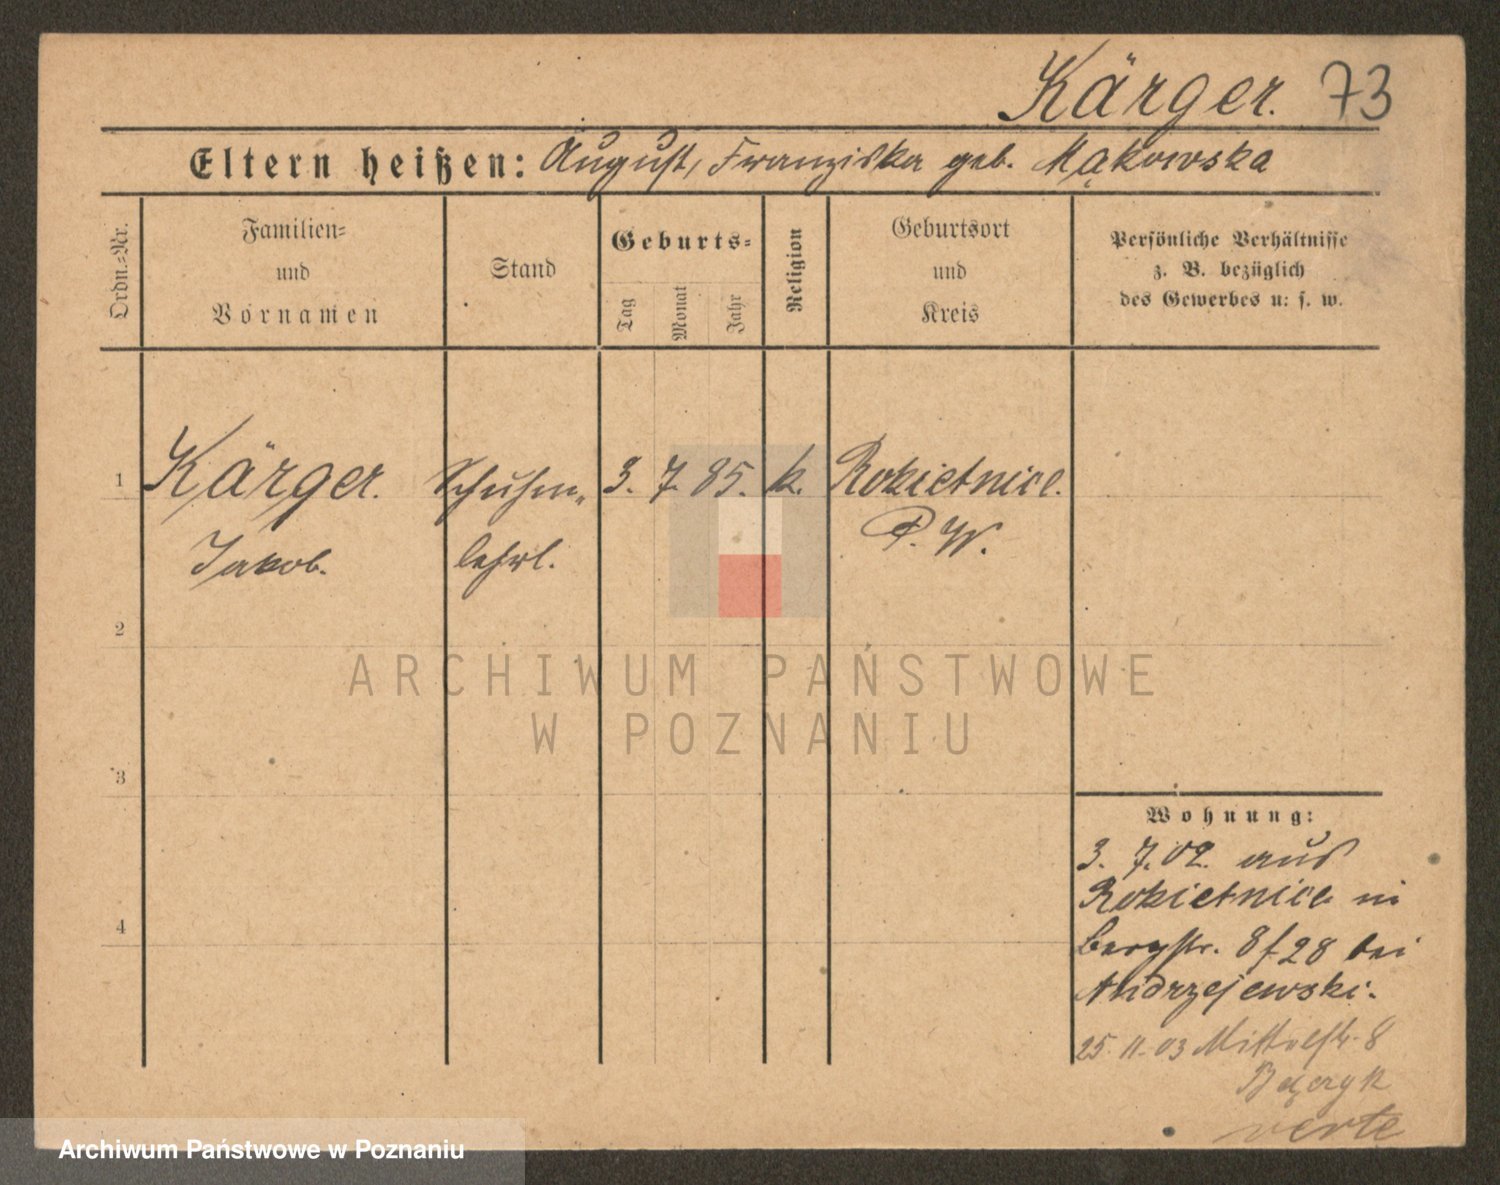 Kärger. 73
Eltern heißen: August, Franziska geb. Mąkowska
Ordn.=Nr.
Familien=
und
Vornamen
Stand
Geburts=
Tag
Monat
Jahr
Religion
Geburtsort
und
Kreis
Persönliche Verhältnisse
z. B. bezüglich
des Gewerbes u. s. w.
1 Kärger. Schuhm„ 3. 7. 85. k. Rokietnice.
Jakob. lehrl. P. W.
2
3
4
Wohnung:
3. 7. 02. aus
Rokietnice in
Bergstr. 8 f 28 bei
Andrzejewski.
25. 11. 03 Mittelstr. 8
verte
ARCHIWUM PAŃSTWOWE
W POZNANIU
Archiwum Państwowe w Poznaniu